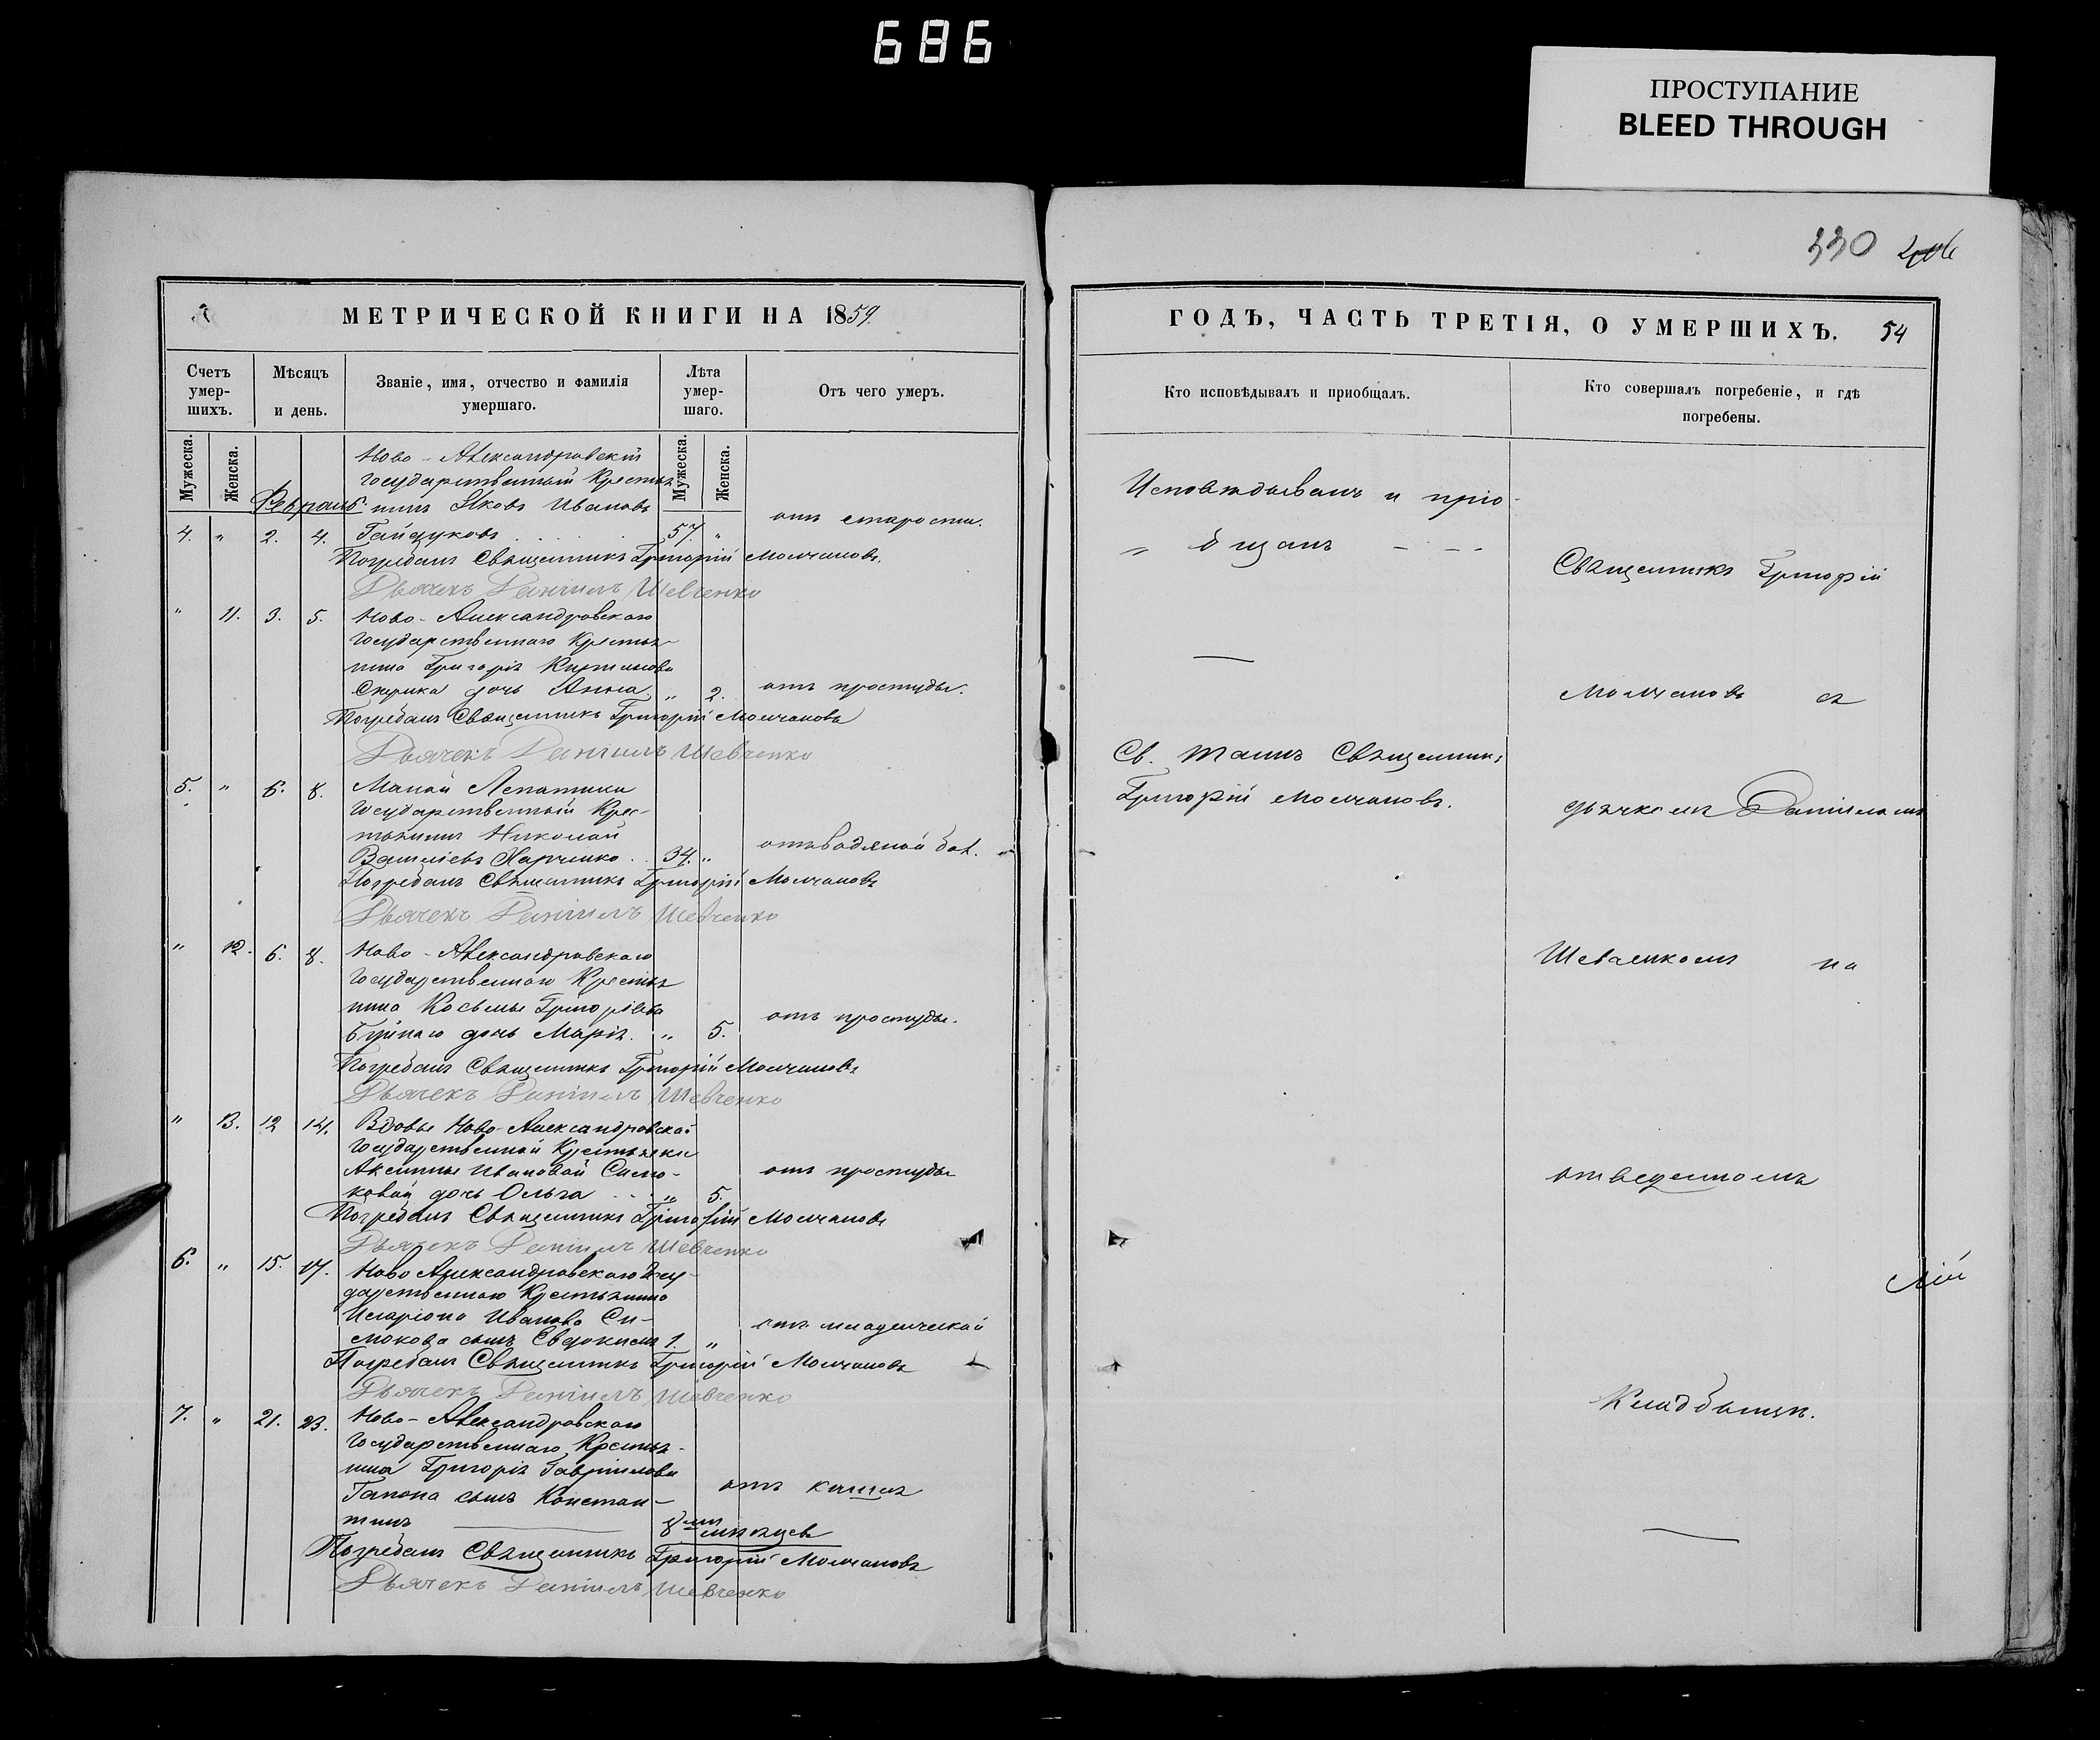 686
ПРОСТУПАНИЕ
BLEED THROUGH
330
МЕТРИЧЕСКОЙ КНИГИ НА 1859.
Счетъ умер-шихъ.
Мѣсяцъ и день.
Званіе, имя, отчество и фамилія умершаго.
Лѣта умер-шаго.
Отъ чего умеръ.
Мужеска.
Женска.
Мужеска.
Женска.
Ново-Александровскій
Государственный Крестья
Февраль. нинъ Яковъ Ивановъ
4. " 2. 4. Гайдуковъ 57. " отъ старости.
Погребалъ Священникъ Григорій Молчановъ.
Дьячекъ Даніилъ Шевченко
" 11. 3. 5. Ново-Александровскаго
Государственнаго Крестья-
нина Григорія
дочь Анна " 2. отъ простуды.
Погребалъ Священникъ Григорій Молчановъ
Дьячекъ Даніилъ Шевченко
5. " 6. 8. Малой Лепатихи
Государственный Крес-
тьянинъ Николай
Василіевъ Харченко 34. " отъ водяной бол.
Погребалъ Священникъ Григорій Молчановъ
Дьячекъ Даніилъ Шевченко
" 12. 6. 8. Ново-Александровскаго
Государственнаго Крестья
нина Косьмы Григоріева
дочь Марія. " 5. отъ простуды.
Погребалъ Священникъ Григорій Молчановъ
Дьячекъ Даніилъ Шевченко
" 13. 12 14. Вдовы Ново-Александровской
Государственной Крестьянки
Аксиніи Ивановой Симо-
ковой дочь Ольга " 5. отъ простуды
Погребалъ Священникъ Григорій Молчановъ
Дьячекъ Даніилъ Шевченко
6. " 15. 17. Ново Александровскаго Госу-
дарственнаго Крестьянина
Иларіона Иванова Си-
мокова сынъ Евдокимъ 1. " отъ младенческой
Погребалъ Священникъ Григорій Молчановъ
Дьячекъ Даніилъ Шевченко
7. " 21. 23. Ново-Александровскаго
Государственнаго Крестья-
нина Григорія Гавріилова
Гапона сынъ Констан-
тинъ 8ми мѣсяцев отъ кашля
Погребалъ Священникъ Григорій Молчановъ
Дьячекъ Даніилъ Шевченко
ГОДЪ, ЧАСТЬ ТРЕТІЯ, О УМЕРШИХЪ. 54
Кто исповѣдывалъ и приобщалъ.
Кто совершалъ погребеніе, и гдѣ погребены.
Исповѣдывалъ и пріо-
" бщалъ
Св. Таинъ Священникъ
Григорій Молчановъ.
Священникъ Григорій
Молчановъ съ
дьячкомъ Даніиломъ
Шевченкомъ на
отведенномъ
Кладбищѣ.